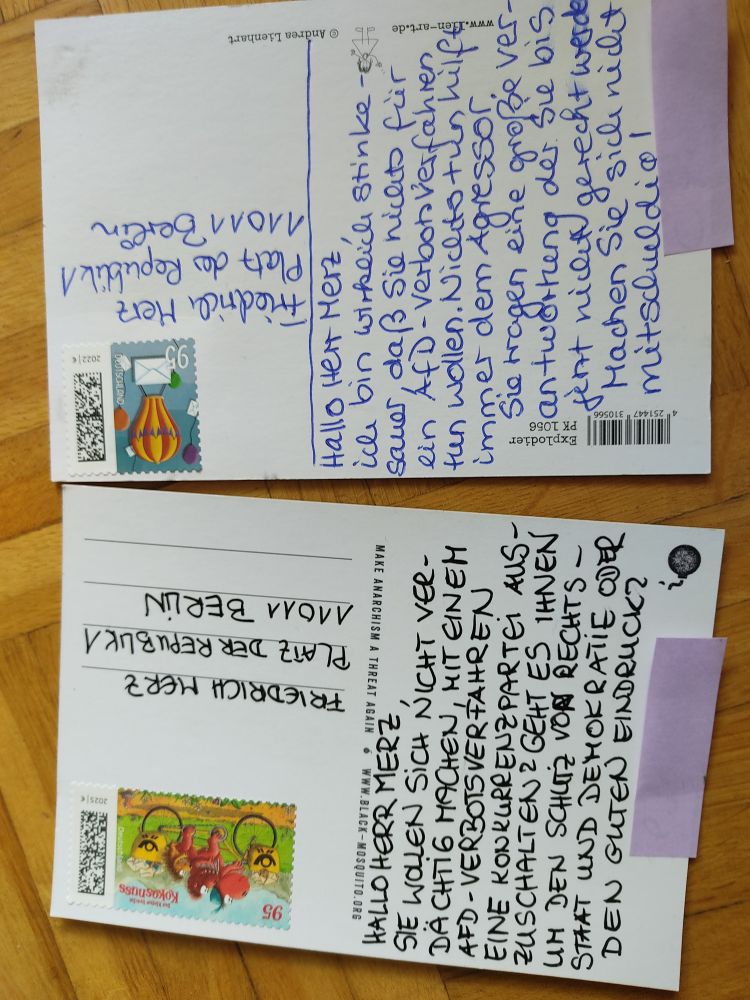 © Andrea Lienhart
www.lien-art.de
2022 | €
DEUTSCHLAND
95
Friedrich Merz
Platz der Republik 1
11011 Berlin
Hallo Herr Merz,
ich bin wirklich stinke-
sauer daß Sie nichts für
ein AfD-Verbotsverfahren
tun wollen. Nichtstun hilft
immer dem Agressor
Sie tragen eine große Ver-
antwortung der Sie bis
jetzt nicht gerecht werde
Machen Sie sich nicht
mitschuldig!
Explodier
PK 1056
4 251447 310566
2025 | €
Deutschland
Der kleine Drache
Kokosnuss
95
FRIEDRICH MERZ
PLATZ DER REPUBLIK 1
11011 BERLIN
MAKE ANARCHISM A THREAT AGAIN WWW.BLACK-MOSQUITO.ORG
HALLO HERR MERZ,
SIE WOLLEN SICH NICHT VER-
DÄCHTIG MACHEN, MIT EINEM
AFD-VERBOTSVERFAHREN
EINE KONKURRENZPARTEI AUS-
ZUSCHALTEN? GEHT ES IHNEN
UM DEN SCHUTZ VON RECHTS-
STAAT UND DEMOKRATIE ODER
DEN GUTEN EINDRUCK?